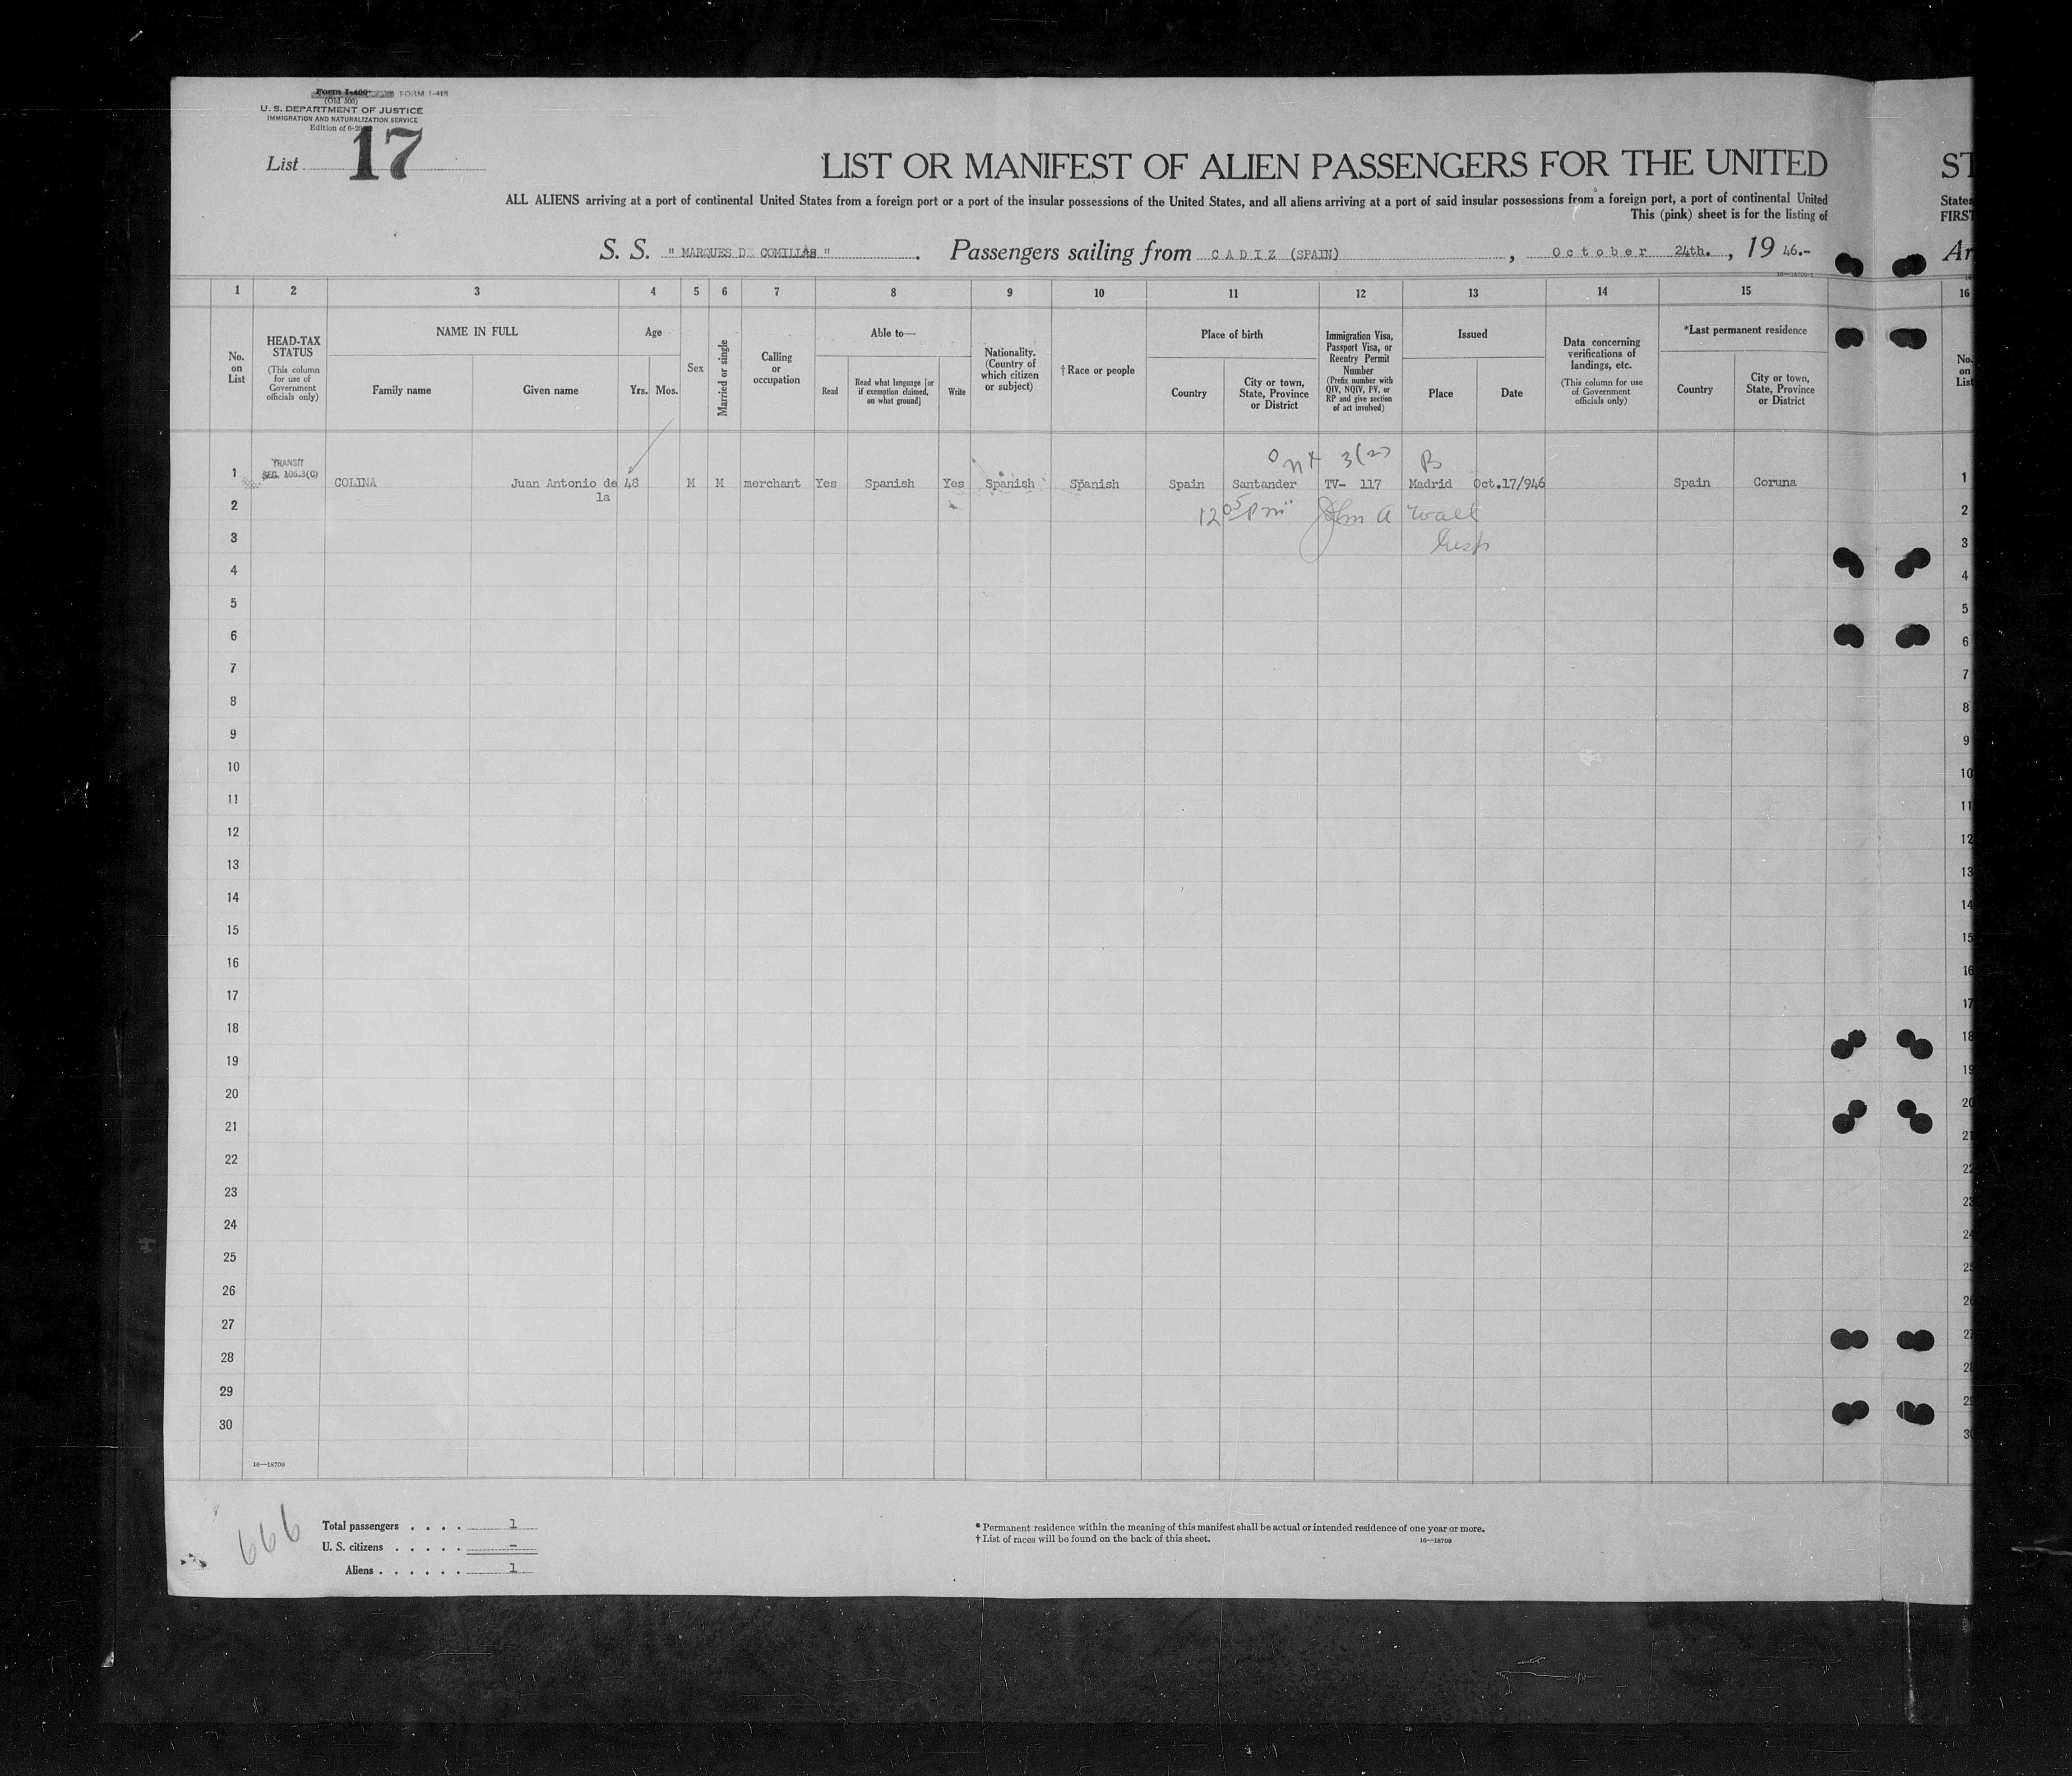 Form I-400 FORM I-415
(Old 500)
U. S. DEPARTMENT OF JUSTICE
IMMIGRATION AND NATURALIZATION SERVICE
Edition of 6-20
List 17
LIST OR MANIFEST OF ALIEN PASSENGERS FOR THE UNITED ST
ALL ALIENS arriving at a port of continental United States from a foreign port or a port of the insular possessions of the United States, and all aliens arriving at a port of said insular possessions from a foreign port, a port of continental United States
This (pink) sheet is for the listing of FIRST
S. S. " MARQUES DE COMILLAS " . Passengers sailing from CADIZ (SPAIN) , October 24th. , 19 46.- Ar
16—18709-1
1 2 3 4 5 6 7 8 9 10 11 12 13 14 15 16
No. on List
HEAD-TAX STATUS
(This column for use of Government officials only)
NAME IN FULL
Family name
Given name
Age
Yrs. Mos.
Sex
Married or single
Calling or occupation
Able to—
Read
Read what language [or if exemption claimed, on what ground]
Write
Nationality. (Country of which citizen or subject)
†Race or people
Place of birth
Country
City or town, State, Province or District
Immigration Visa, Passport Visa, or Reentry Permit Number
(Prefix number with QIV, NQIV, PV, or RP and give section of act involved)
Issued
Place
Date
Data concerning verifications of landings, etc.
(This column for use of Government officials only)
*Last permanent residence
Country
City or town, State, Province or District
No. on List
TRANSIT
SEC. 105.3(C)
3(2) B
1 COLINA Juan Antonio de la 48 M M merchant Yes Spanish Yes Spanish Spanish Spain Santander TV- 117 Madrid Oct.17/946 Spain Coruna 1
12 05 pm John A Wall
Insp
2 2
3 3
4 4
5 5
6 6
7 7
8 8
9 9
10 10
11 11
12 12
13 13
14 14
15 15
16 16
17 17
18 18
19 19
20 20
21 21
22 22
23 23
24 24
25 25
26 26
27 27
28 28
29 29
30 30
16—18709
666
Total passengers . . . . 1
U. S. citizens . . . . . -
Aliens . . . . . . 1
* Permanent residence within the meaning of this manifest shall be actual or intended residence of one year or more.
† List of races will be found on the back of this sheet.
16—18709